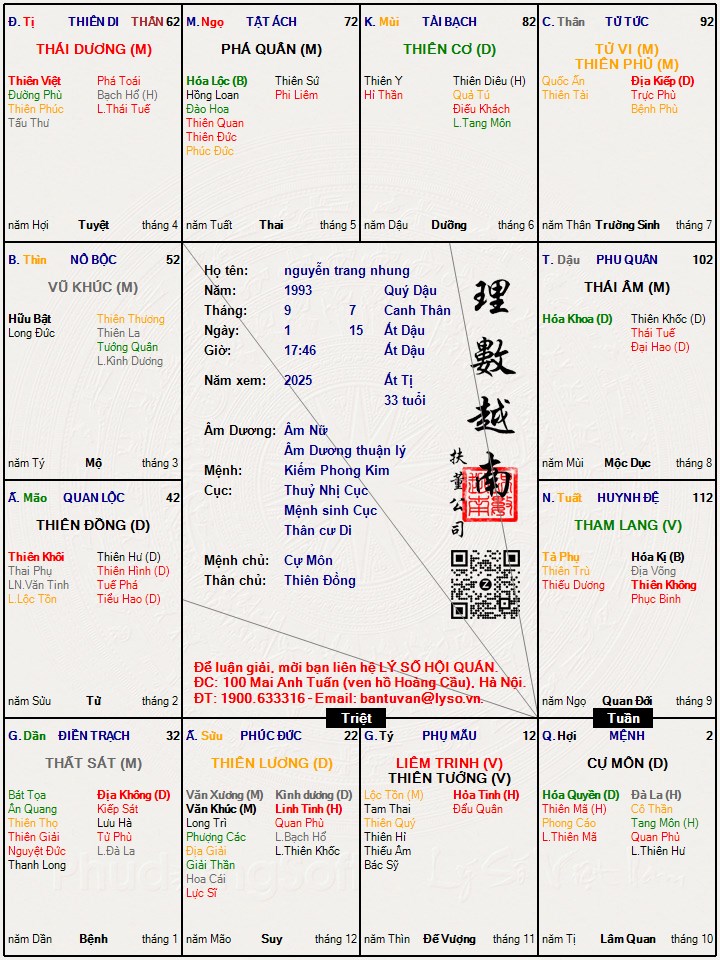 Đ. Tị THIÊN DI THÂN 62
THÁI DƯƠNG (M)
Thiên Việt Phá Toái
Đường Phù Bạch Hổ (H)
Thiên Phúc L.Thái Tuế
Tấu Thư
năm Hợi Tuyệt tháng 4
M. Ngọ TẬT ÁCH 72
PHÁ QUÂN (M)
Hóa Lộc (B) Thiên Sứ
Hồng Loan Phi Liêm
Đào Hoa
Thiên Quan
Thiên Đức
Phúc Đức
năm Tuất Thai tháng 5
K. Mùi TÀI BẠCH 82
THIÊN CƠ (D)
Thiên Y Thiên Diêu (H)
Hỉ Thần Quả Tú
Điếu Khách
L.Tang Môn
năm Dậu Dưỡng tháng 6
C. Thân TỬ TỨC 92
TỬ VI (M)
THIÊN PHỦ (M)
Quốc Ấn Địa Kiếp (D)
Thiên Tài Trực Phù
Bệnh Phù
năm Thân Trường Sinh tháng 7
B. Thìn NÔ BỘC 52
VŨ KHÚC (M)
Hữu Bật Thiên Thương
Long Đức Thiên La
Tướng Quân
L.Kình Dương
năm Tý Mộ tháng 3
Họ tên: nguyễn trang nhung
Năm: 1993 Quý Dậu
Tháng: 9 7 Canh Thân
Ngày: 1 15 Ất Dậu
Giờ: 17:46 Ất Dậu
Năm xem: 2025 Ất Tị
33 tuổi
Âm Dương: Âm Nữ
Âm Dương thuận lý
Mệnh: Kiếm Phong Kim
Cục: Thuỷ Nhị Cục
Mệnh sinh Cục
Thân cư Di
Mệnh chủ: Cự Môn
Thân chủ: Thiên Đồng
理數越南
扶董公司
Để luận giải, mời bạn liên hệ LÝ SỐ HỘI QUÁN.
ĐC: 100 Mai Anh Tuấn (ven hồ Hoàng Cầu), Hà Nội.
ĐT: 1900.633316 - Email: bantuvan@lyso.vn.
T. Dậu PHU QUÂN 102
THÁI ÂM (M)
Hóa Khoa (D) Thiên Khốc (D)
Thái Tuế
Đại Hao (D)
năm Mùi Mộc Dục tháng 8
Ấ. Mão QUAN LỘC 42
THIÊN ĐỒNG (D)
Thiên Khôi Thiên Hư (D)
Thai Phụ Thiên Hình (D)
LN.Văn Tinh Tuế Phá
L.Lộc Tồn Tiểu Hao (D)
năm Sửu Tử tháng 2
N. Tuất HUYNH ĐỆ 112
THAM LANG (V)
Tả Phụ Hóa Kị (B)
Thiên Trù Địa Võng
Thiếu Dương Thiên Không
Phục Binh
năm Ngọ Quan Đới tháng 9
Triệt
Tuần
G. Dần ĐIỀN TRẠCH 32
THẤT SÁT (M)
Bát Tọa Địa Không (D)
Ân Quang Kiếp Sát
Thiên Thọ Lưu Hà
Thiên Giải Tử Phù
Nguyệt Đức L.Đà La
Thanh Long
năm Dần Bệnh tháng 1
Ấ. Sửu PHÚC ĐỨC 22
THIÊN LƯƠNG (D)
Văn Xương (M) Kình dương (D)
Văn Khúc (M) Linh Tinh (H)
Long Trì Quan Phù
Phượng Các L.Bạch Hổ
Địa Giải L.Thiên Khốc
Giải Thần
Hoa Cái
Lực Sĩ
năm Mão Suy tháng 12
G. Tý PHỤ MẪU 12
LIÊM TRINH (V)
THIÊN TƯỚNG (V)
Lộc Tồn (M) Hỏa Tinh (H)
Tam Thai Đẩu Quân
Thiên Quý
Thiên Hỉ
Thiếu Âm
Bác Sỹ
năm Thìn Đế Vượng tháng 11
Q. Hợi MỆNH 2
CỰ MÔN (D)
Hóa Quyền (D) Đà La (H)
Thiên Mã (H) Cô Thần
Phong Cáo Tang Môn (H)
L.Thiên Mã Quan Phủ
L.Thiên Hư
năm Tị Lâm Quan tháng 10